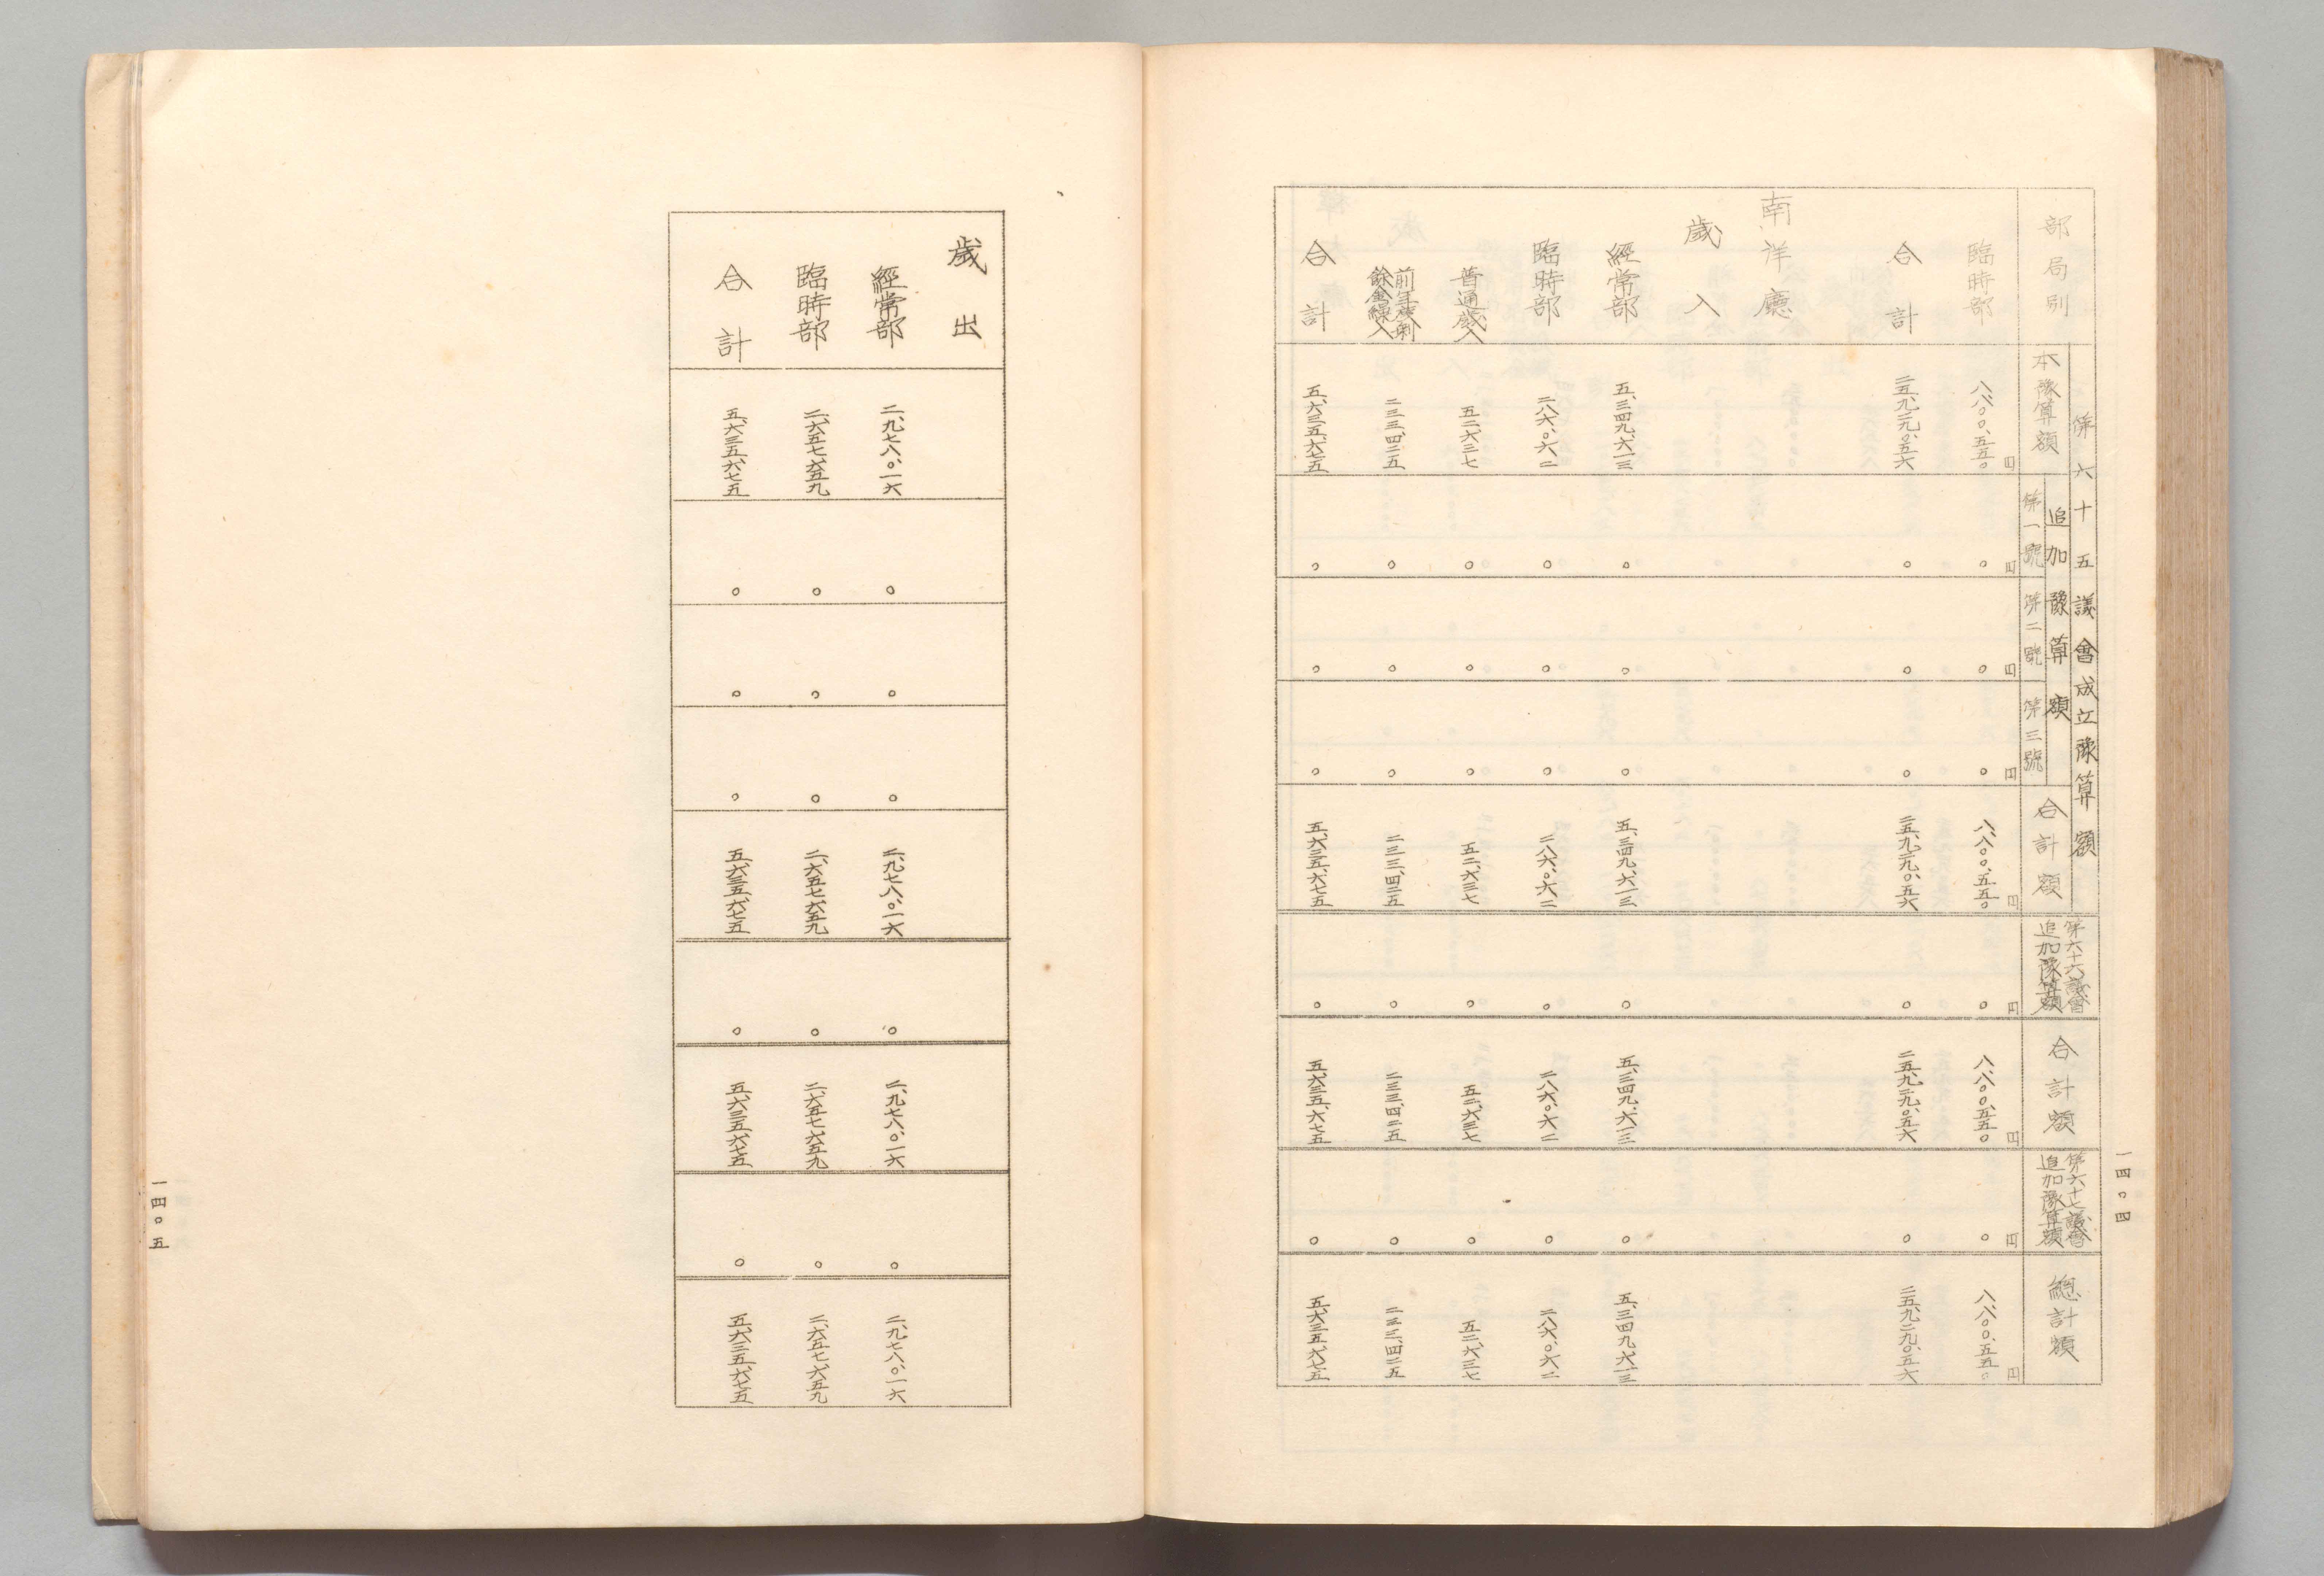 一四〇四
部局別
第六十五議會成立豫算額
本豫算額
追加豫算額
第一號
第二號
第三號
合計額
第六十六議會
追加豫算額
合計額
第六十七議會
追加豫算額
總計額
臨時部 八、八〇〇、五五〇円 〇円 〇円 〇円 八、八〇〇、五五〇円 〇円 八、八〇〇、五五〇円 〇円 八、八〇〇、五五〇円
合計 二五、九二九、〇五六 〇 〇 〇 二五、九二九、〇五六 〇 二五、九二九、〇五六 〇 二五、九二九、〇五六
南洋廳
歳入
經常部 五、三四九、六一三 〇 〇 〇 五、三四九、六一三 〇 五、三四九、六一三 〇 五、三四九、六一三
臨時部 二八六、〇六二 〇 〇 〇 二八六、〇六二 〇 二八六、〇六二 〇 二八六、〇六二
普通歳入 五二、六三七 〇 〇 〇 五二、六三七 〇 五二、六三七 〇 五二、六三七
前年度剰
餘金繰入 二三三、四二五 〇 〇 〇 二三三、四二五 〇 二三三、四二五 〇 二三三、四二五
合計 五、六三五、六七五 〇 〇 〇 五、六三五、六七五 〇 五、六三五、六七五 〇 五、六三五、六七五
歳出
經常部 二、九七八、〇一六 〇 〇 〇 二、九七八、〇一六 〇 二、九七八、〇一六 〇 二、九七八、〇一六
臨時部 二、六五七、六五九 〇 〇 〇 二、六五七、六五九 〇 二、六五七、六五九 〇 二、六五七、六五九
合計 五、六三五、六七五 〇 〇 〇 五、六三五、六七五 〇 五、六三五、六七五 〇 五、六三五、六七五
一四〇五